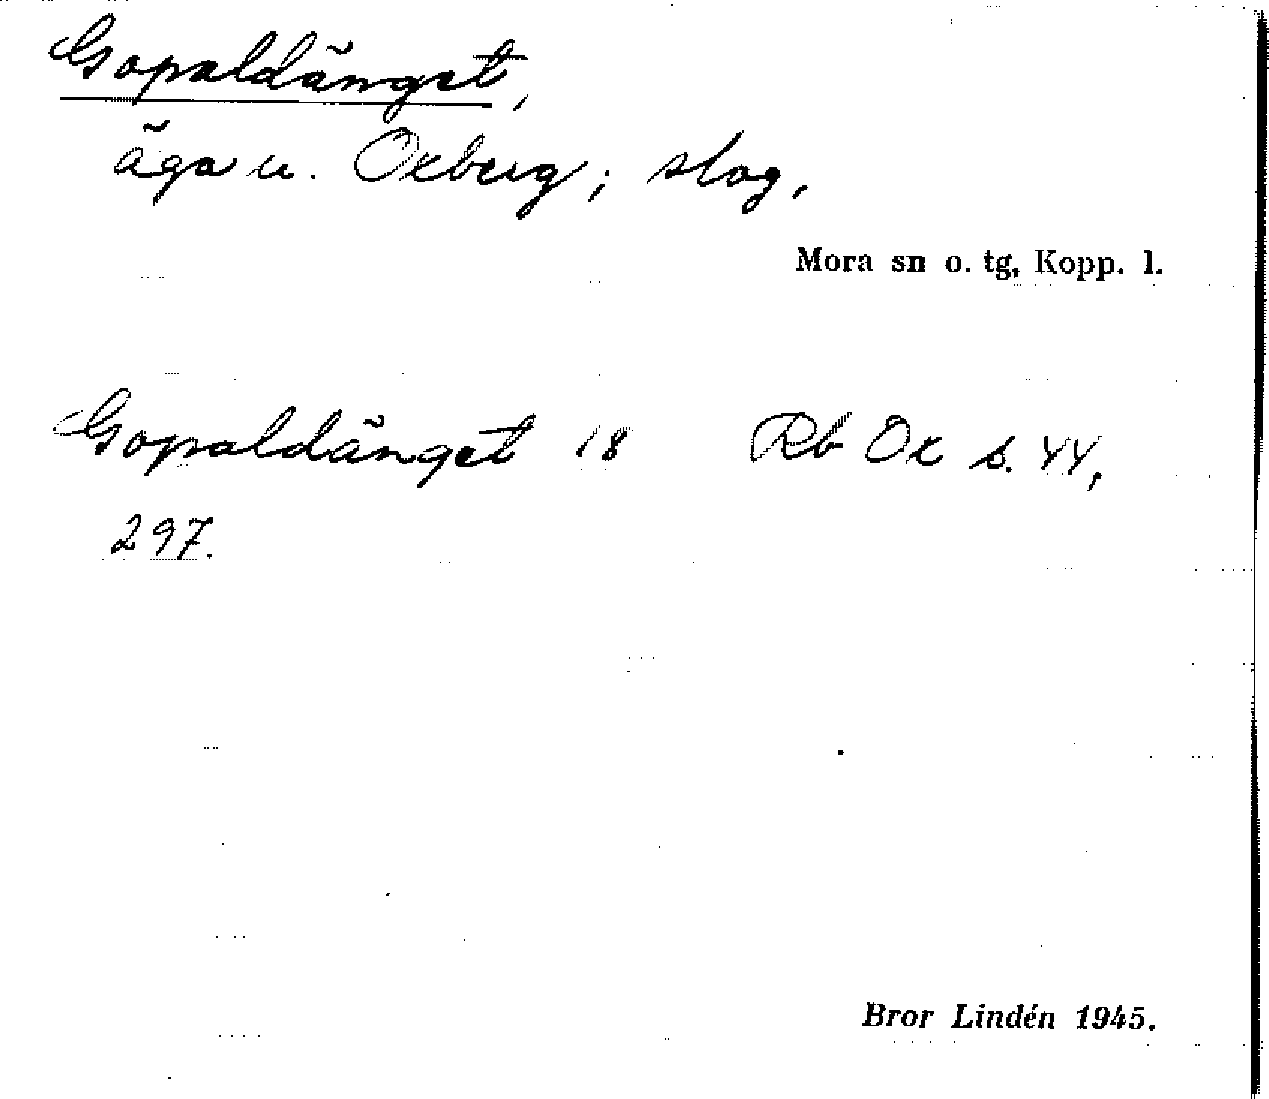 Gopaldänget,
äga u. Oxberg; slog,
Mora sn o. tg, Kopp. l.
Gopaldänget 18 Rb Ox s. 44,
297.
Bror Lindén 1945.